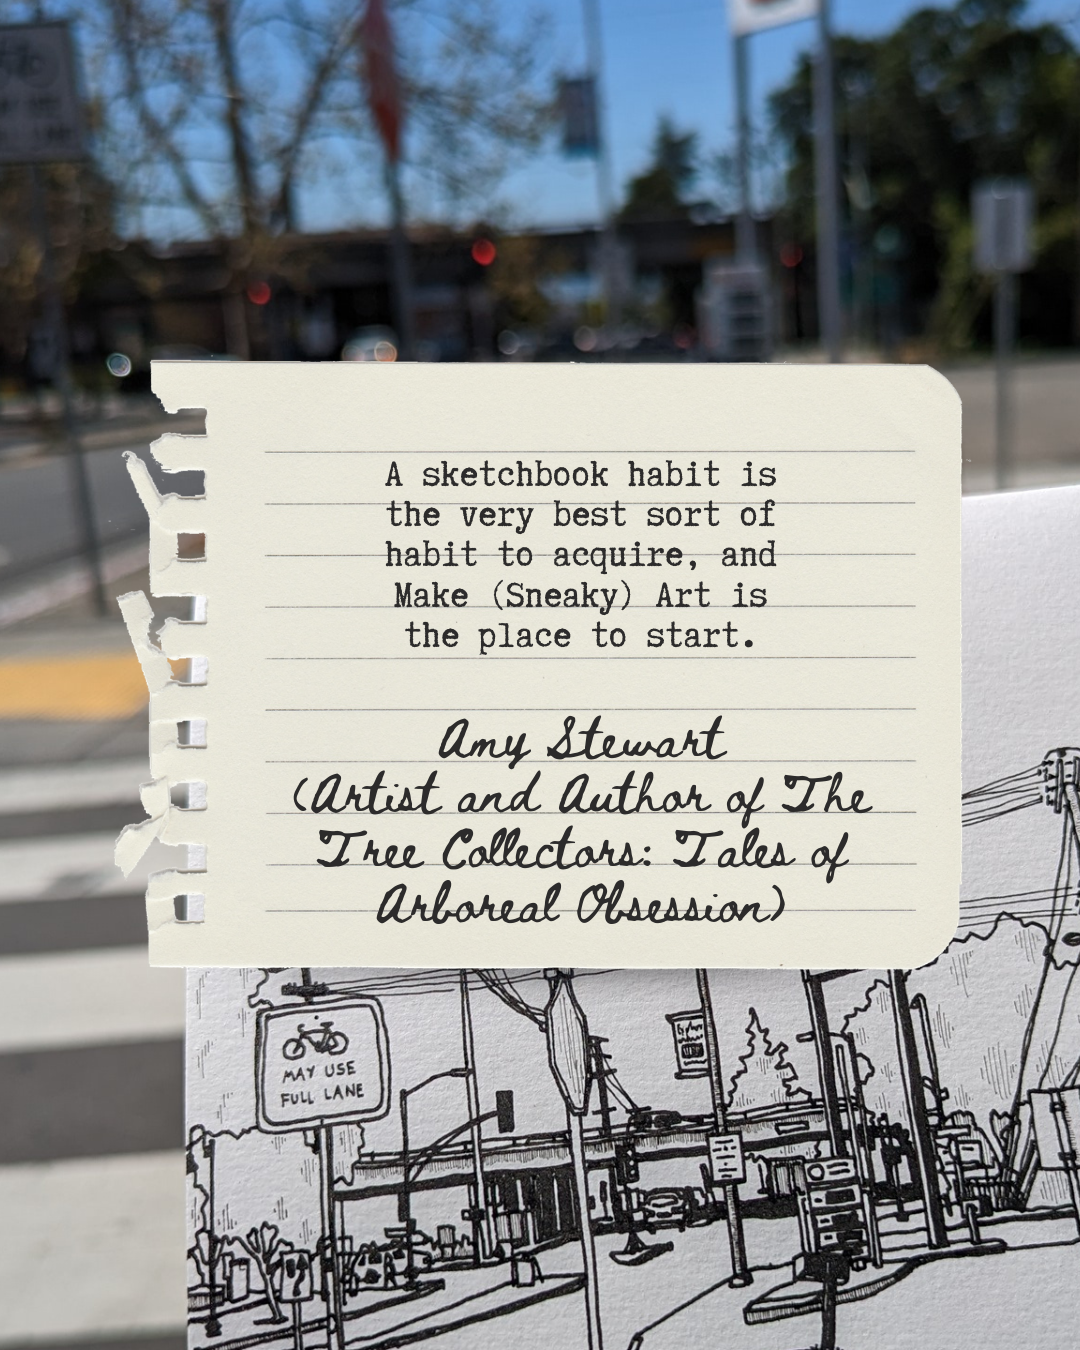 A sketchbook habit is
the very best sort of
habit to acquire, and
Make (Sneaky) Art is
the place to start.
Amy Stewart
(Artist and Author of The
Tree Collectors: Tales of
Arboreal Obsession)
MAY USE
FULL LANE